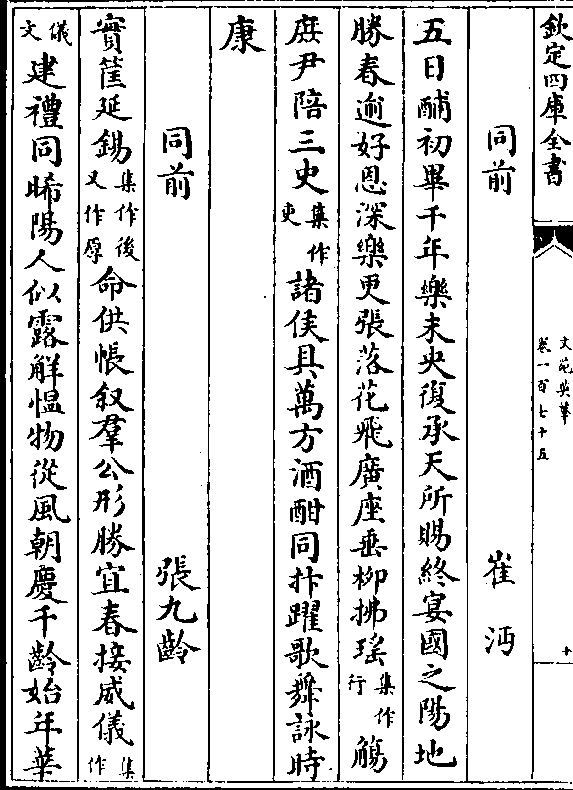 欽定四庫全書
文苑英華
卷一百七十五
十
同前 崔沔
五日酺初畢千年樂未央復承天所賜終宴國之陽地
勝春逾好恩深樂更張落花飛廣座垂柳拂瑤集作行觴
庶尹陪三史集作吏諸侯具萬方酒酣同抃躍歌舞詠時
康
同前 張九齡
實筐延錫集作後又作厚命供帳叙羣公形勝宜春接威儀集作
儀文建禮同晞陽人似露解慍物從風朝慶千齡始年華